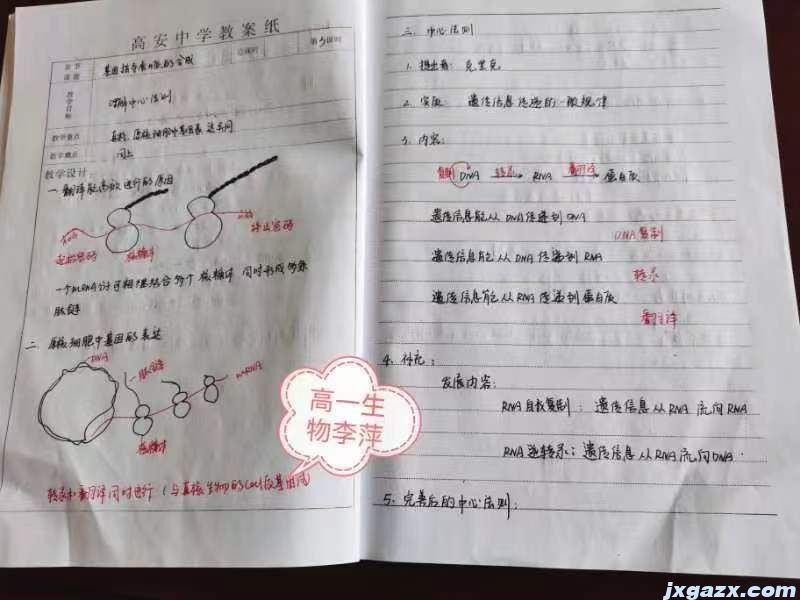 高安中学教案纸
章节
课题
基因指导蛋白质的合成
课时
第3课时
教学目标
理解中心法则
教学重点
真核、原核细胞中基因表达异同
教学难点
同上
教学设计:
一、翻译能高效进行的原因
起始密码
核糖体
终止密码
一个mRNA分子可相继结合多个核糖体 同时形成多条
肽链
二、原核细胞中基因的表达
DNA
肽链
mRNA
核糖体
高一生
物李萍
转录和翻译同时进行
三、中心法则
1. 提出者: 克里克
2. 实质: 遗传信息传递的一般规律
3. 内容:
复制 DNA 转录 RNA 翻译 蛋白质
遗传信息能从DNA传递到DNA
DNA复制
遗传信息能从DNA传递到RNA
转录
遗传信息能从RNA传递到蛋白质
翻译
4. 补充:
发展内容:
RNA自我复制: 遗传信息从RNA流向RNA
RNA逆转录: 遗传信息从RNA流向DNA.
5. 完善后的中心法则:
jxgazx.com